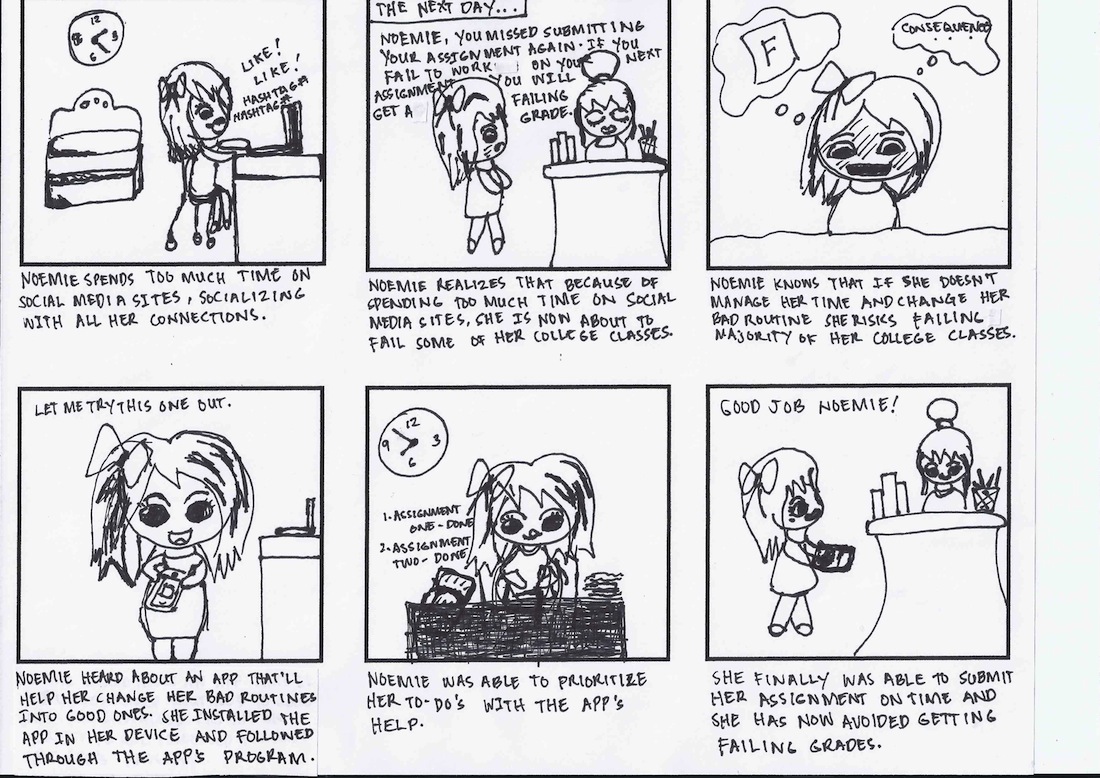 12
3
6
LIKE!
LIKE!
HASHTAG#
HASHTAG#
NOEMIE SPENDS TOO MUCH TIME ON
SOCIAL MEDIA SITES, SOCIALIZING
WITH ALL HER CONNECTIONS.
THE NEXT DAY...
NOEMIE, YOU MISSED SUBMITTING
YOUR ASSIGNMENT AGAIN. IF YOU
FAIL TO WORK ON YOUR NEXT
ASSIGNMENT YOU WILL
GET A FAILING
GRADE.
NOEMIE REALIZES THAT BECAUSE OF
SPENDING TOO MUCH TIME ON SOCIAL
MEDIA SITES, SHE IS NOW ABOUT TO
FAIL SOME OF HER COLLEGE CLASSES.
F
CONSEQUENCE
...
NOEMIE KNOWS THAT IF SHE DOESN'T
MANAGE HER TIME AND CHANGE HER
BAD ROUTINE SHE RISKS FAILING
MAJORITY OF HER COLLEGE CLASSES.
LET ME TRY THIS ONE OUT.
NOEMIE HEARD ABOUT AN APP THAT'LL
HELP HER CHANGE HER BAD ROUTINES
INTO GOOD ONES. SHE INSTALLED THE
APP IN HER DEVICE AND FOLLOWED
THROUGH THE APP'S PROGRAM.
12
9 3
6
1. ASSIGNMENT
ONE - DONE
2. ASSIGNMENT
TWO - DONE
NOEMIE WAS ABLE TO PRIORITIZE
HER TO-DO'S WITH THE APP'S
HELP.
GOOD JOB NOEMIE!
SHE FINALLY WAS ABLE TO SUBMIT
HER ASSIGNMENT ON TIME AND
SHE HAS NOW AVOIDED GETTING
FAILING GRADES.